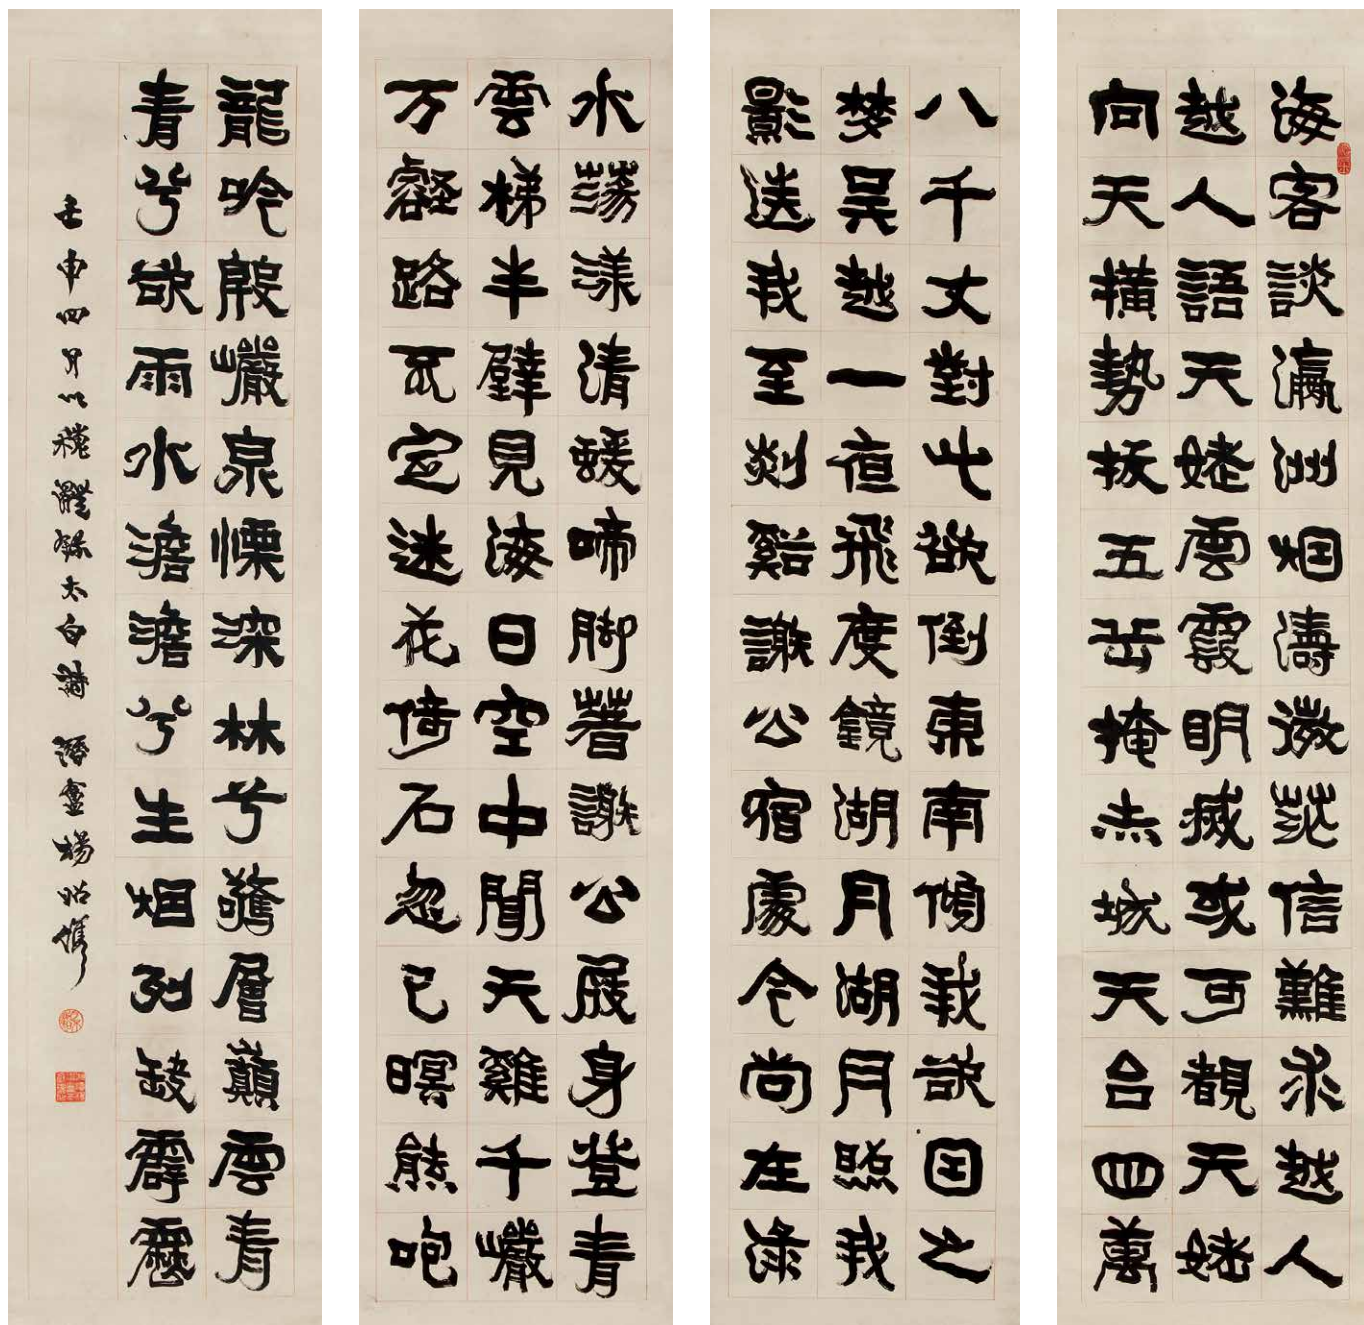 海客談瀛洲烟濤微茫信難求越人
越人語天姥雲霞明滅或可覩天姥
向天橫勢拔五岳掩赤城天台四萬
八千丈對此欲倒東南傾我欲因之
梦吳越一夜飛度鏡湖月湖月照我
影送我至剡谿謝公宿處今尚在淥
水蕩漾清蝯啼脚著謝公屐身登青
雲梯半壁見海日空中聞天雞千巖
万壑路不定迷花倚石忽已暝熊咆
龍吟殷巖泉慄深林兮驚層巔雲青
青兮欲雨水澹澹兮生烟列缺霹靂
壬申四月以錄太白詩 潛盦楊昭儁